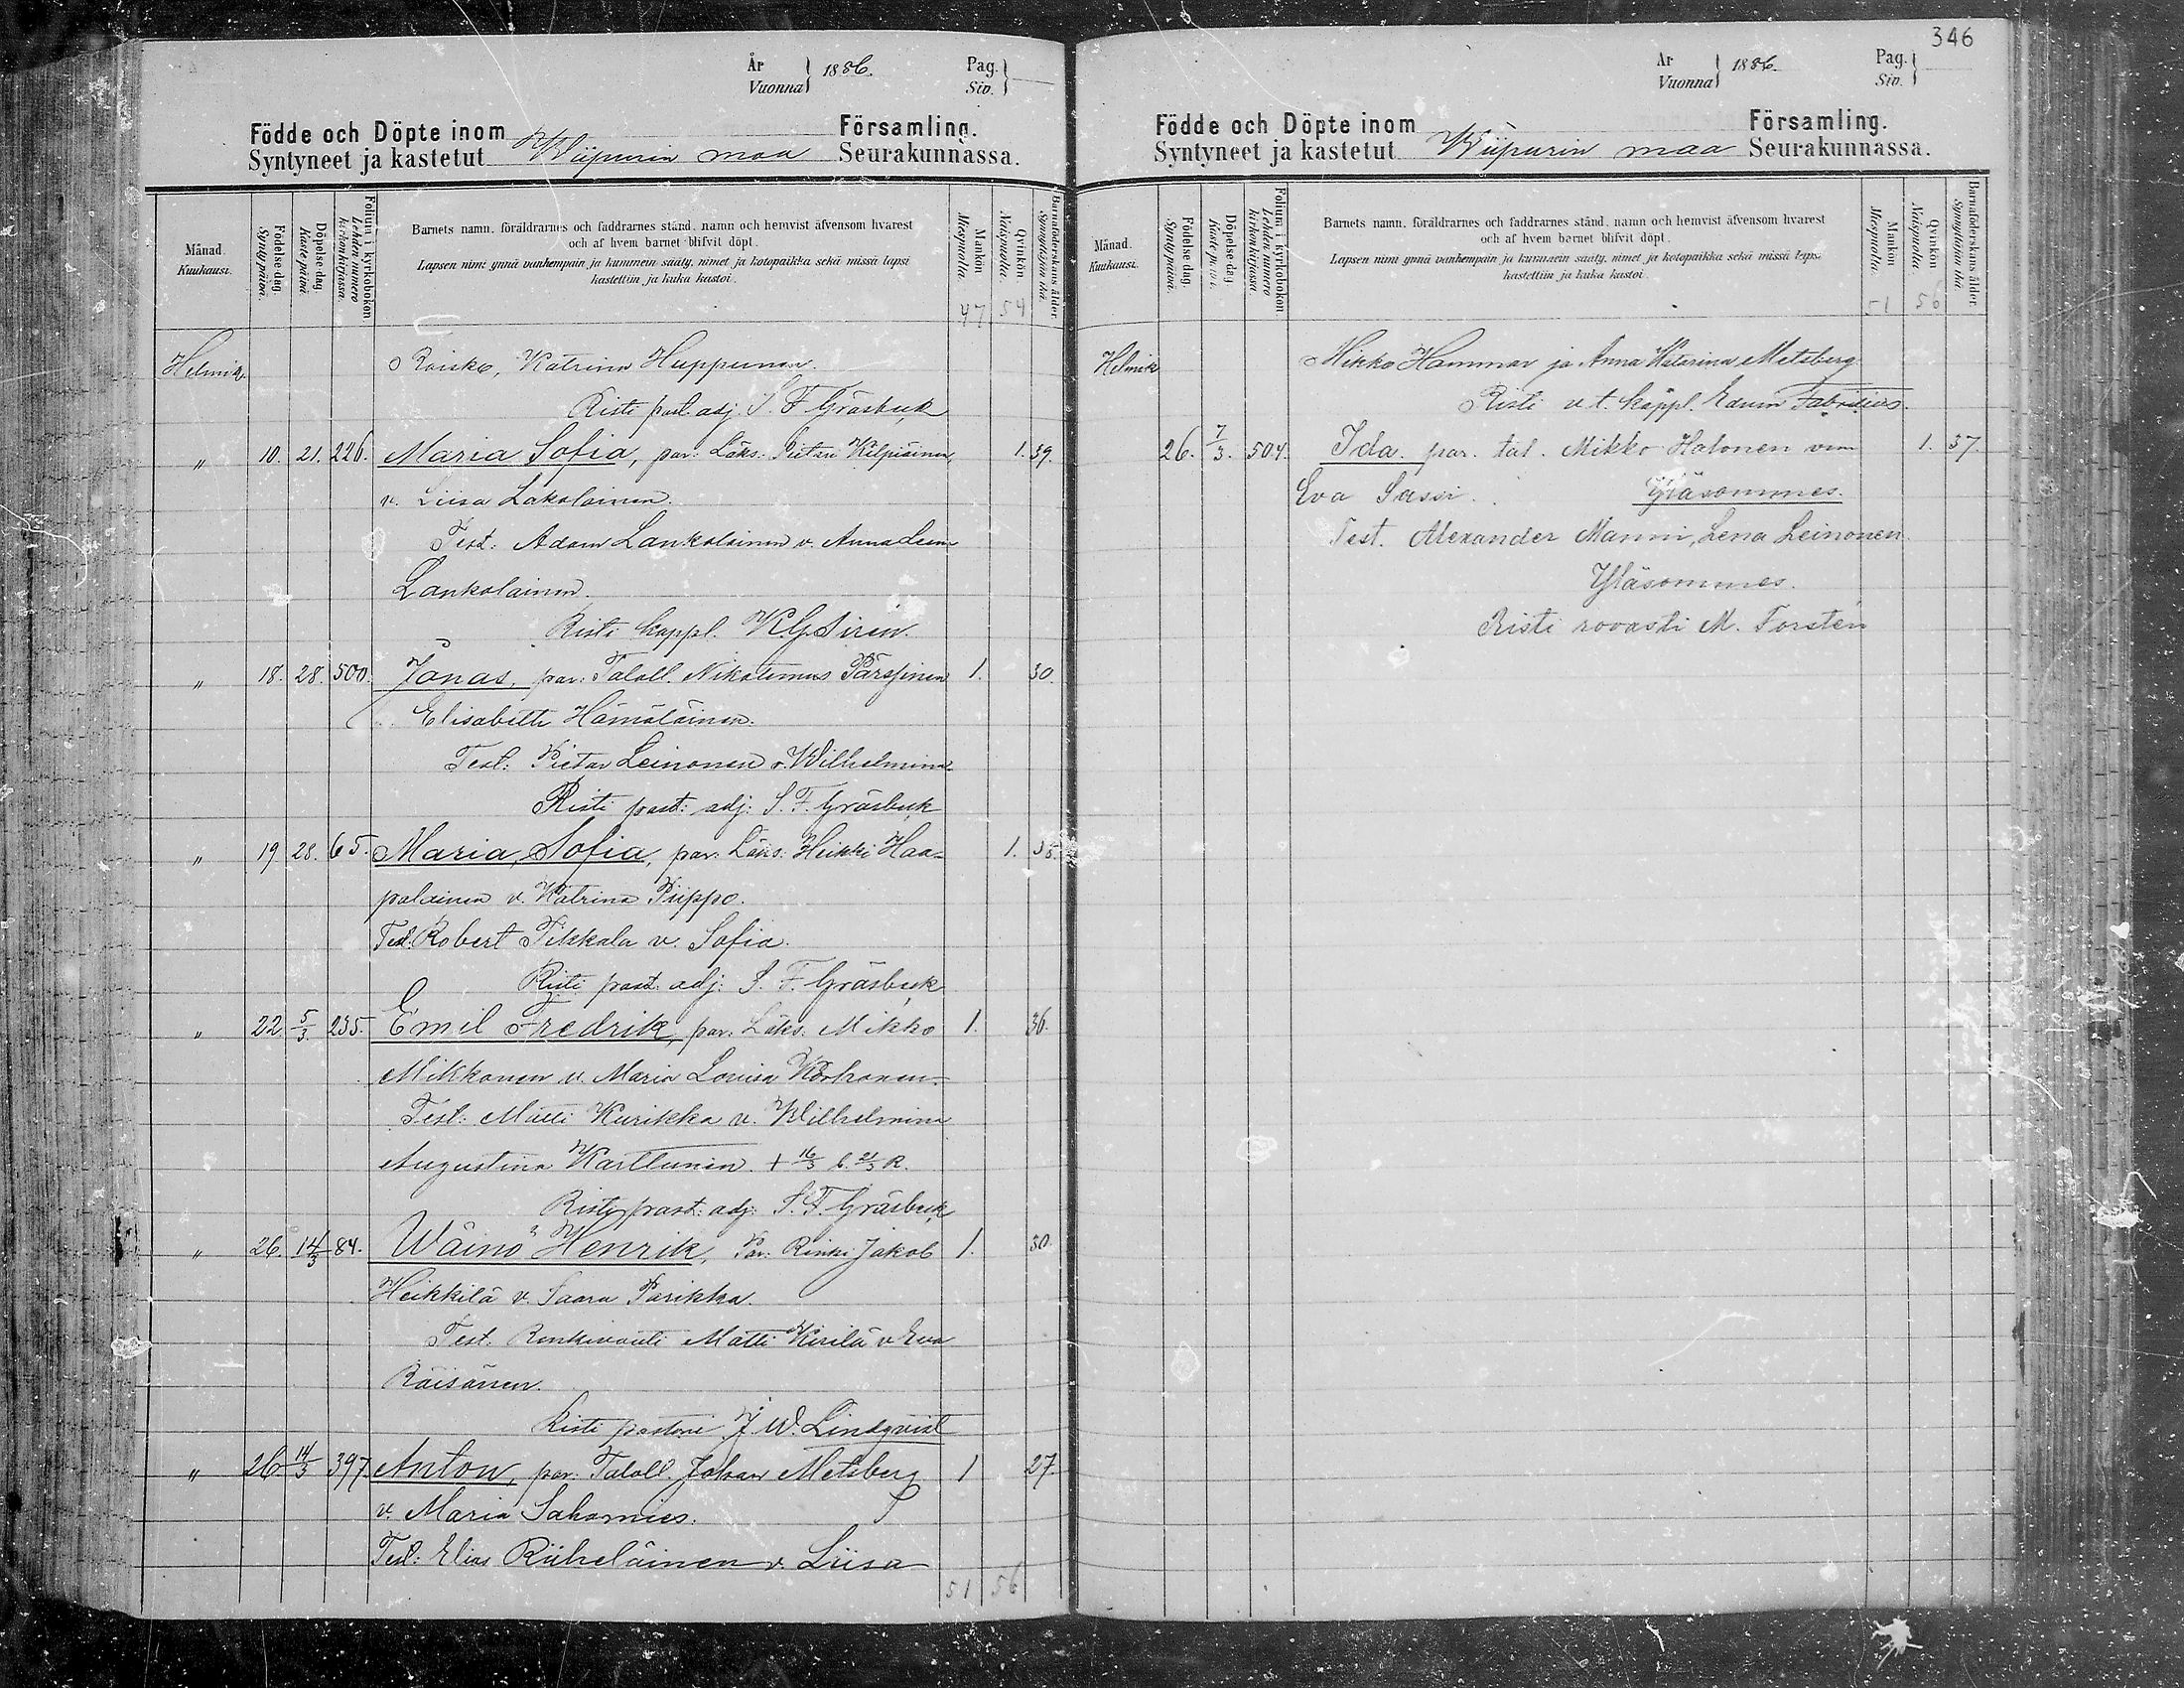 År
Vuonna } 1886.
Pag.
Siv. }
Födde och Döpte inom
Syntyneet ja kastetut Wiipurin maa
Församling.
Seurakunnassa.
Månad.
Kuukausi.
Födelse-dag.
Syntypäivä.
Döpelse-dag.
Kaste päivä.
Folium i kyrkoboken
Lehden numero kirkonkirjassa.
Barnets namn, föräldrarnes och faddrarnes stånd, namn och hemvist äfvensom hvarest
och af hvem barnet blifvit döpt.
Lapsen nimi ynnä vanhempain ja kummein sääty, nimet ja kotopaikka sekä missä lapsi
kastettiin ja kuka kastoi.
Mankön
Miespuolta.
Qvinkön.
Naispuolta.
Barnaföderskans ålder.
Synnyttäjän ikä.
47 54
Helmik. Raisko, Katrina Huppunen.
Risti past. adj. S. F. Gräsbeck
" 10. 21. 226. Maria Sofia, par: Läks. Pietari Kilpiäinen, 1. 39.
v. Liisa Lakolainen.
Test: Adam Lankolainen v. Anna Leena
Lankolainen.
Risti kappl. K. G. Siren.
" 18. 28. 500. Jonas, par: Taloll. Nikotemus Pärssinen 1. 30.
Elisabeth Hämäläinen.
Test: Pietar Leinonen v. Wilhelmina
Risti past: adj: S. F. Gräsbeck
" 19 28. 65. Maria, Sofia, par: Läks. Heikki Haa- 1. 38.
palainen v. Katrina Piippo.
Test: Robert Tikkala v. Sofia.
Risti past. adj: S. F. Gräsbeck
" 22 5/3. 235. Emil Fredrik, par. Läks. Mikko 1. 36.
Mikkonen v. Maria Lovisa Korhonen.
Test: Matti Kurikka v. Wilhelmina
Augustina Karttunen. + 16/3 b. 21/3 R.
Risti past: adj: S. F. Gräsbeck
" 26. 14/3 84. Wäinö Henrik, Par: Rinki Jakob 1. 30.
Heikkilä v. Saara Parikka.
Test. Renkivouti Matti Kirilä v. Eva
Räisänen.
Risti pastori J. W. Lindqvist
" 26 14/3 397. Anton, par: Taloll. Johan Metsberg 1 27.
v. Maria Sahamies.
Test: Elias Riiheläinen v. Liisa
51 56
346
År
Vuonna } 1886.
Pag.
Siv. }
Födde och Döpte inom
Syntyneet ja kastetut Wiipurin maa
Församling.
Seurakunnassa.
Månad.
Kuukausi.
Födelse-dag.
Syntypäivä.
Döpelse-dag
Kaste päivä.
Folium i kyrkoboken
Lehden numero kirkonkirjassa.
Barnets namn, föräldrarnes och faddrarnes stånd, namn och hemvist äfvensom hvarest
och af hvem barnet blifvit döpt.
Lapsen nimi ynnä vanhempain ja kummein sääty, nimet ja kotopaikka sekä missä lapsi
kastettiin ja kuka kastoi.
Mankön
Miespuolta.
Qvinkön
Naispuolta.
Barnaföderskans ålder.
Synnyttäjän ikä.
51 56
Helmik Mikko Hammar ja Anna Katarina Metsberg
Risti v. t. kappl. Edvin Fabritius.
26. 7/3. 504. Ida. par. tal. Mikko Halonen vmo 1. 37.
Eva Sassi. Yläsommes.
Test. Alexander Manni, Lena Leinonen
Yläsommes.
Risti rovasti M. Forstén